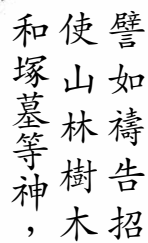 譬如禱告招
使山林樹木
和塚墓等神，